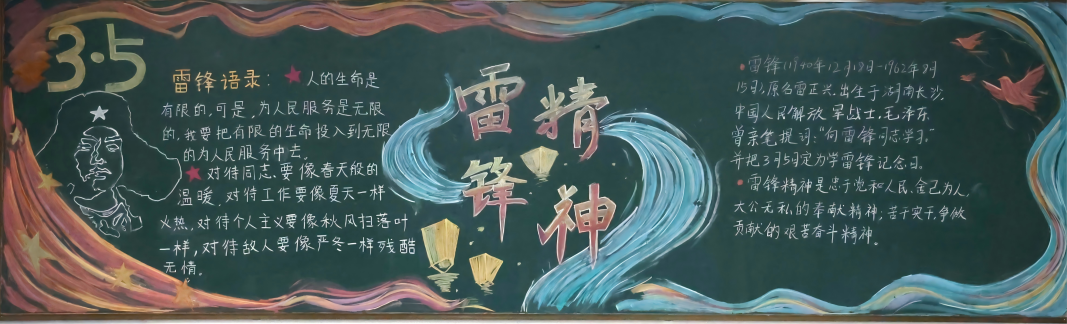 3·5
雷锋语录:
人的生命是
有限的,可是,为人民服务是无限
的,我要把有限的生命投入到无限
的为人民服务中去。
对待同志要像春天般的
温暖,对待工作要像夏天一样
火热,对待个人主义要像秋风扫落叶
一样,对待敌人要像严冬一样残酷
无情。
雷锋
精神
雷锋(1940年12月18日-1962年8月
15日),原名雷正兴,出生于湖南长沙,
中国人民解放军战士,毛泽东
曾亲笔提词:“向雷锋同志学习。”
并把3月5日定为学雷锋纪念日。
雷锋精神是忠于党和人民,舍己为人,
大公无私的奉献精神,苦干实干,争做
贡献的艰苦奋斗精神。